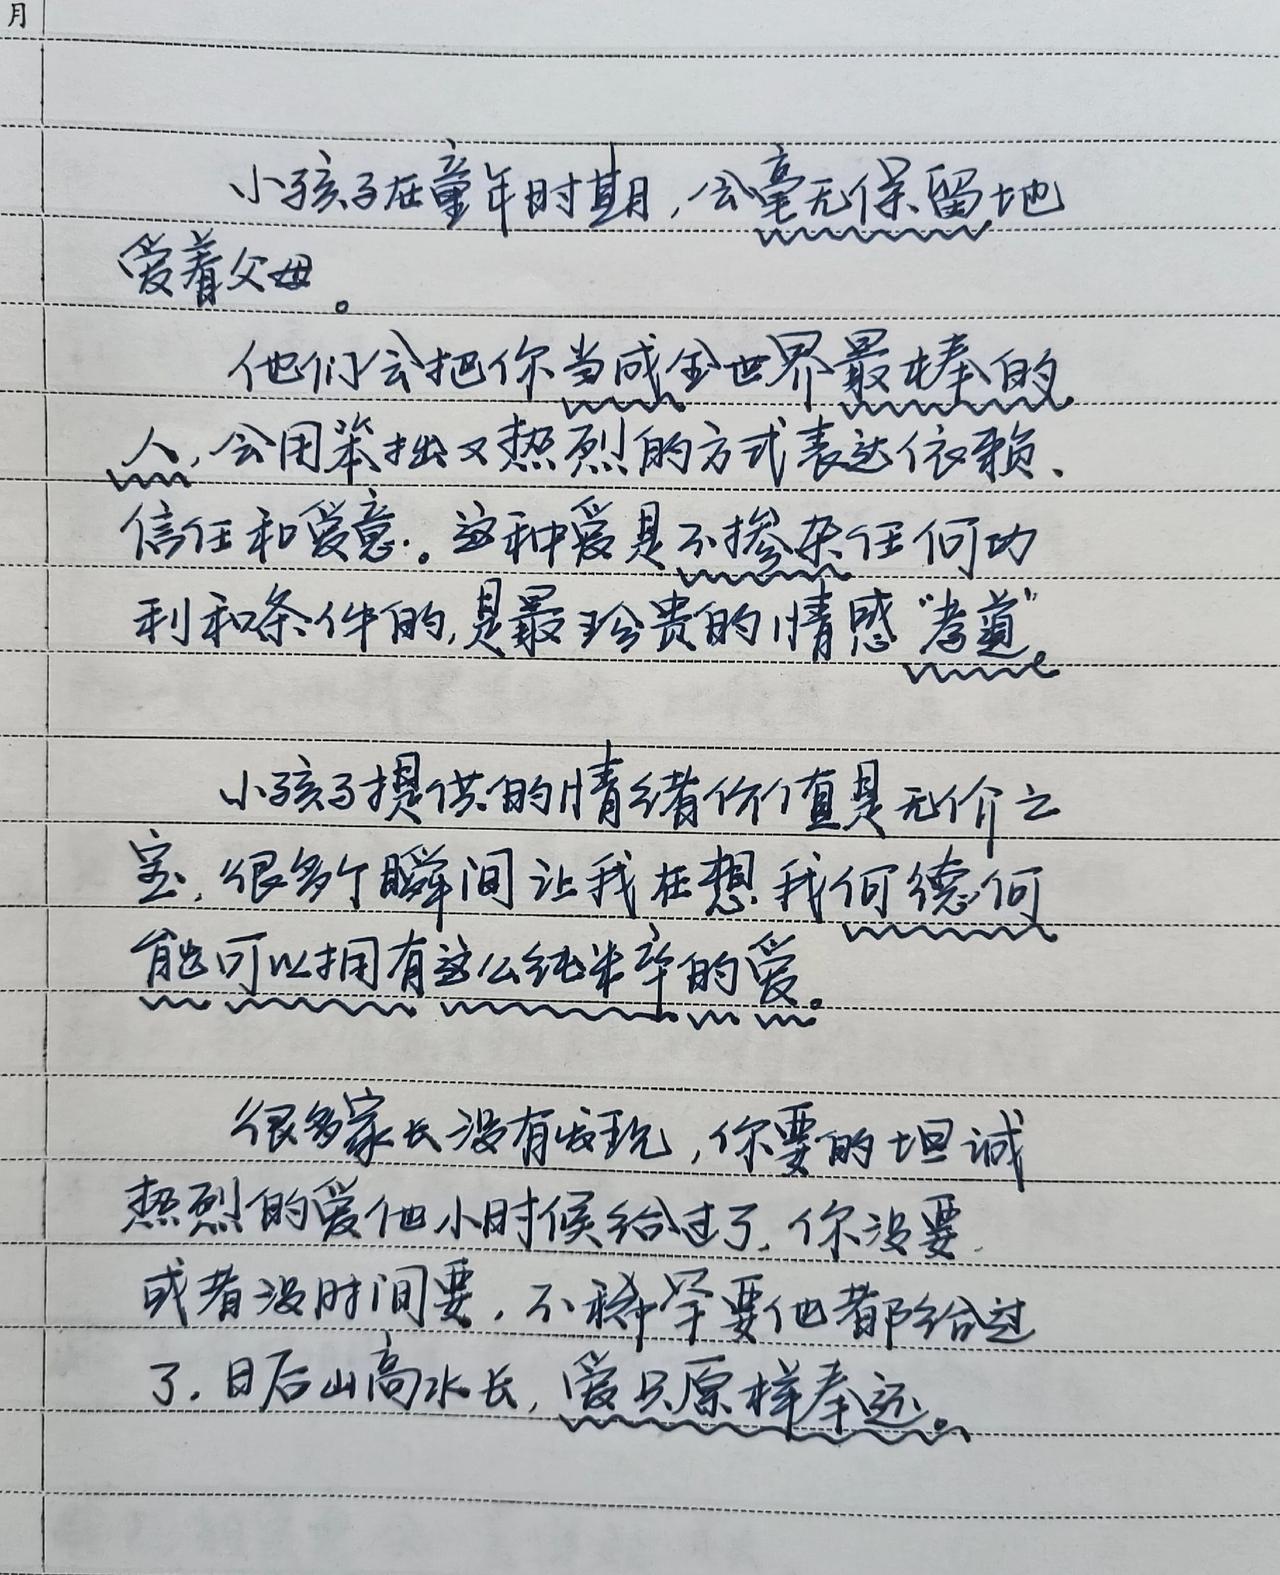 月
小孩子在童年时期，会毫无保留地
爱着父母。
他们会把你当成全世界最棒的
人，会用笨拙又热烈的方式表达依赖、
信任和爱意。这种爱是不掺杂任何功
利和条件的，是最珍贵的情感“孝道”。
小孩子提供的情绪价值是无价之
宝，很多个瞬间让我在想，我何德何
能可以拥有这么纯粹的爱。
很多家长没有发现，你要的坦诚
热烈的爱他小时候给过了，你没要，
或者没时间要，不稀罕要他都给过
了。日后山高水长，爱只原样奉还。